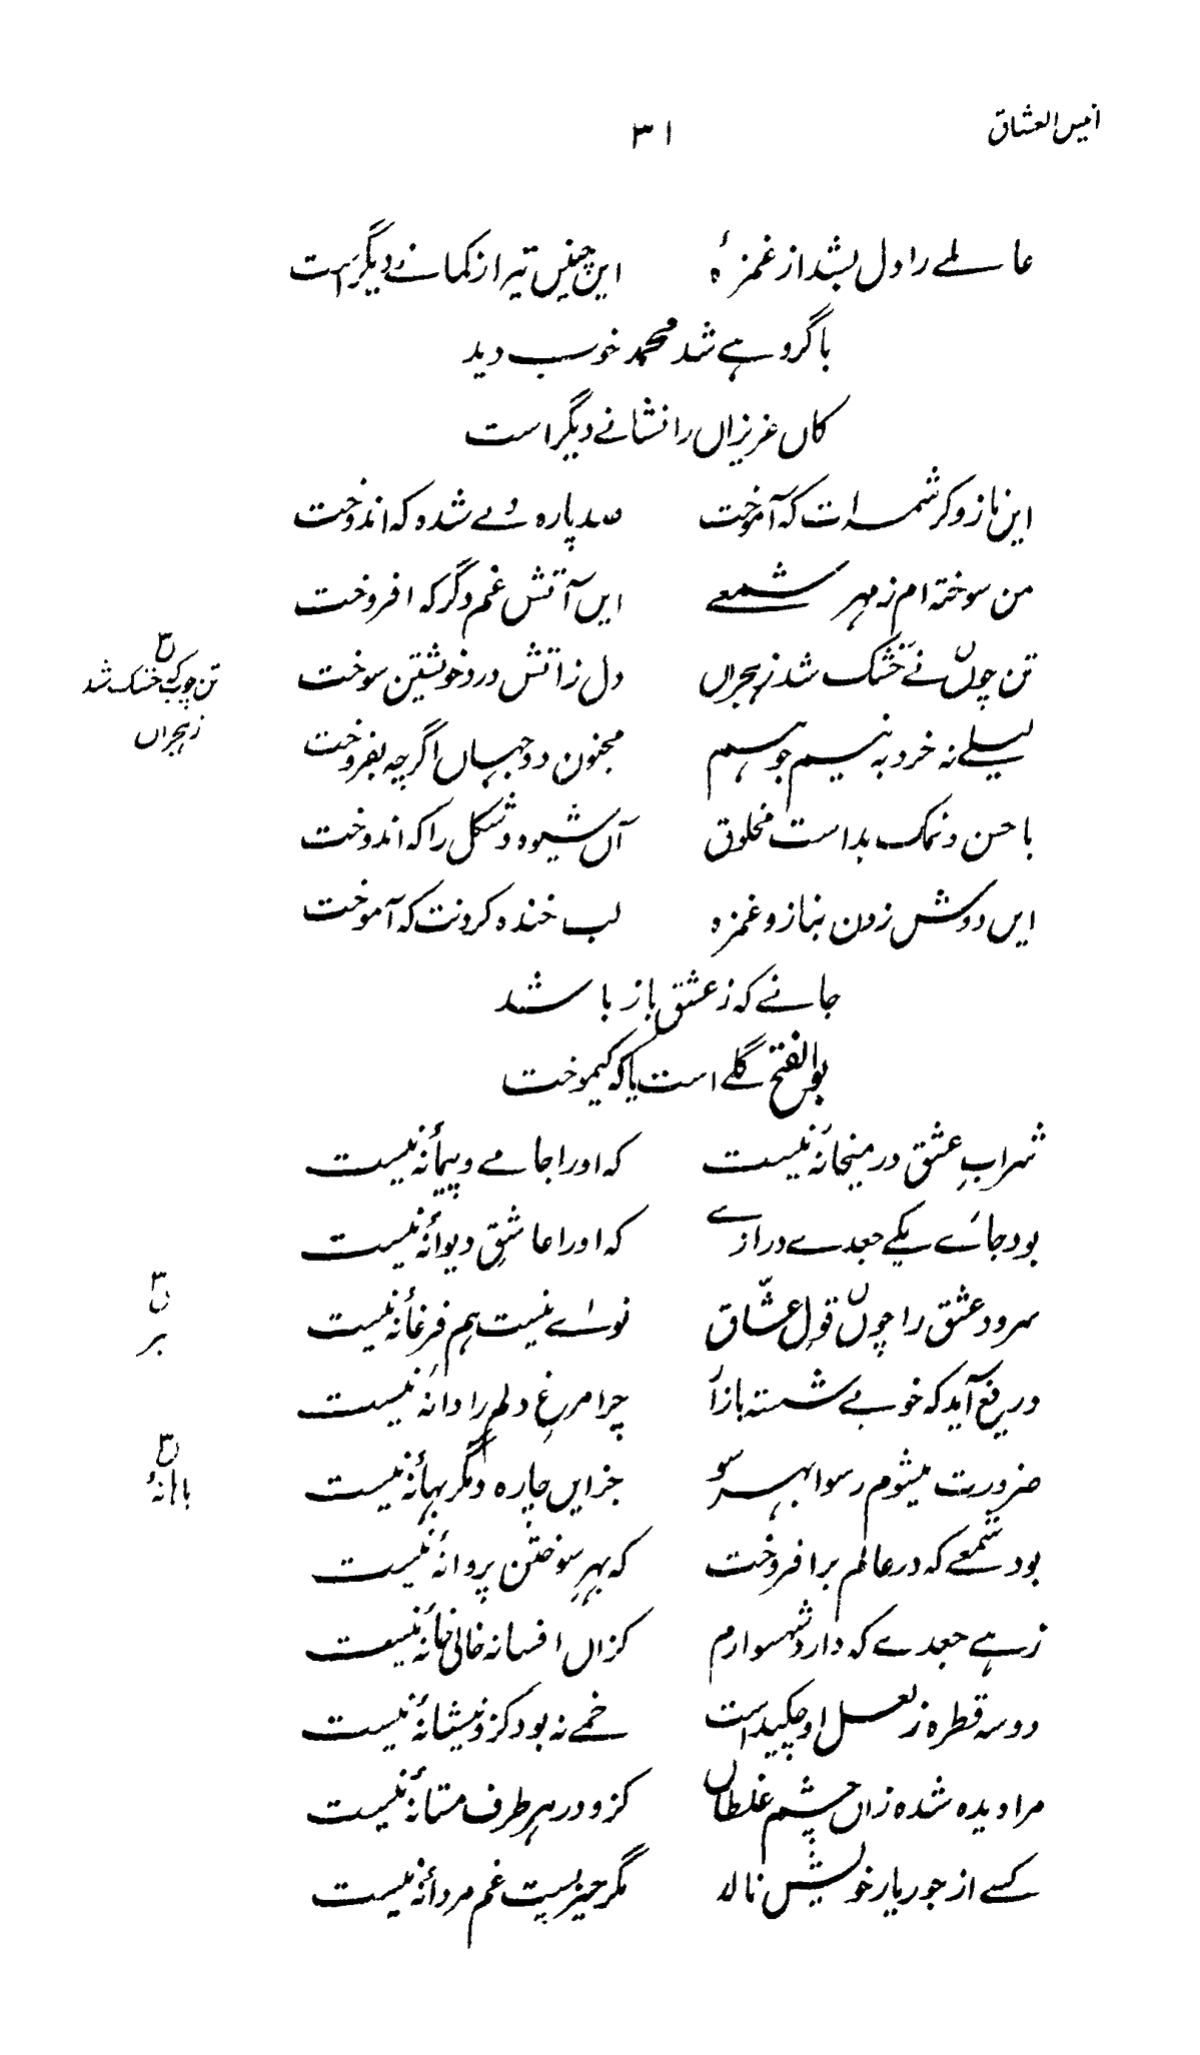 انیس العشاق
۳۱
عالمے را دل بشد از غمزۂ این چنیں تیر از کمانے دیگر است
با گروہے شد محمد خوب دید
کاں عزیزاں را نشانے دیگر است
این ناز و کرشمہ ات کہ آموخت صد پارہ دلے شدہ کہ اندوخت
من سوختہ ام ز مہر شمعے ایں آتش غم دگر کہ افروخت
تن چوں نے خشک شد ز ہجراں دل ز آتش درد خویشتن سوخت
ن۳ تن چوب خشک شد
ز ہجراں
لیلے نہ خرد بہ نیم جو ہم مجنون دو جہاں اگرچہ بفروخت
با حسن و نمک بد است مخلوق آں شیوہ و شکل را کہ اندوخت
ایں دوش زدن بناز و غمزہ لب خندہ کردنت کہ آموخت
جانے کہ ز عشق باز باشد
بوالفتح گلے است یا کہ کیموخت
شراب عشق در میخانۂ نیست کہ او را جامے و پیمانۂ نیست
بود جائے یکے جعدے درازے کہ او را عاشق دیوانۂ نیست
سرود عشق را چوں قول عشّاق نوائے نیست ہم فرغانۂ نیست
ن۳
بر
دریغ آید کہ خوبے شستہ باز آ چرا مرغ دلم را دانۂ نیست
ضرورت میشوم رسوا بہر سو جز ایں چارہ دگر بہانۂ نیست
ن۳
بود شمعے کہ در عالم بر افروخت کہ بہر سوختن پروانۂ نیست
زہے جعدے کہ دارد شہسوارم کزاں افسانہ خالی خانۂ نیست
دو سہ قطرہ ز لعل او چکیداست خمے نہ بود کزو نیشانۂ نیست
مرا دیدہ شدہ زاں چشم غلطاں کزو در ہر طرف مستانۂ نیست
کسے از جور یار خویش نالد مگر حیزیست غم مردانۂ نیست